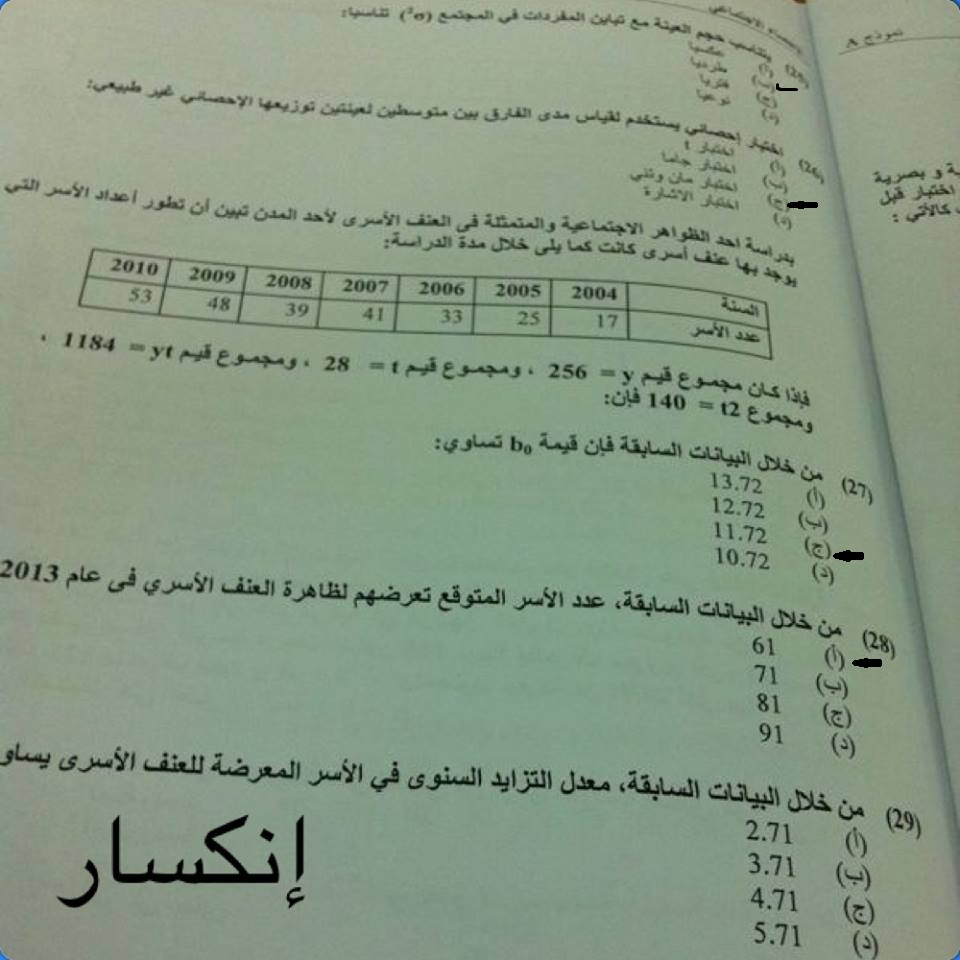 نموذج A
الإحصاء الاجتماعي
(25) يتناسب حجم العينة مع تباين المفردات في المجتمع (σ²) تناسبا:
(أ) عكسيا
(ب) طرديا
(ج) فتريا
(د) نوعيا
(26) اختبار إحصائي يستخدم لقياس مدى الفارق بين متوسطين لعينتين توزيعها الإحصائي غير طبيعي:
(أ) اختبار t
(ب) اختبار جاما
(ج) اختبار مان وتني
(د) اختبار الاشارة
بدراسة احد الظواهر الاجتماعية والمتمثلة فى العنف الأسرى لأحد المدن تبين أن تطور أعداد الأسر التي
يوجد بها عنف أسرى كانت كما يلى خلال مدة الدراسة:
السنة 2004 2005 2006 2007 2008 2009 2010
عدد الأسر 17 25 33 41 39 48 53
فإذا كان مجموع قيم y = 256 ، ومجموع قيم t = 28 ، ومجموع قيم yt = 1184 ،
ومجموع t2 = 140 فإن:
(27) من خلال البيانات السابقة فإن قيمة b₀ تساوي:
(أ) 13.72
(ب) 12.72
(ج) 11.72
(د) 10.72
(28) من خلال البيانات السابقة، عدد الأسر المتوقع تعرضهم لظاهرة العنف الأسري فى عام 2013
(أ) 61
(ب) 71
(ج) 81
(د) 91
(29) من خلال البيانات السابقة، معدل التزايد السنوى في الأسر المعرضة للعنف الأسرى يساو
(أ) 2.71
(ب) 3.71
(ج) 4.71
(د) 5.71
إنكسار
ة و بصرية
اختبار قبل
كالأتي :